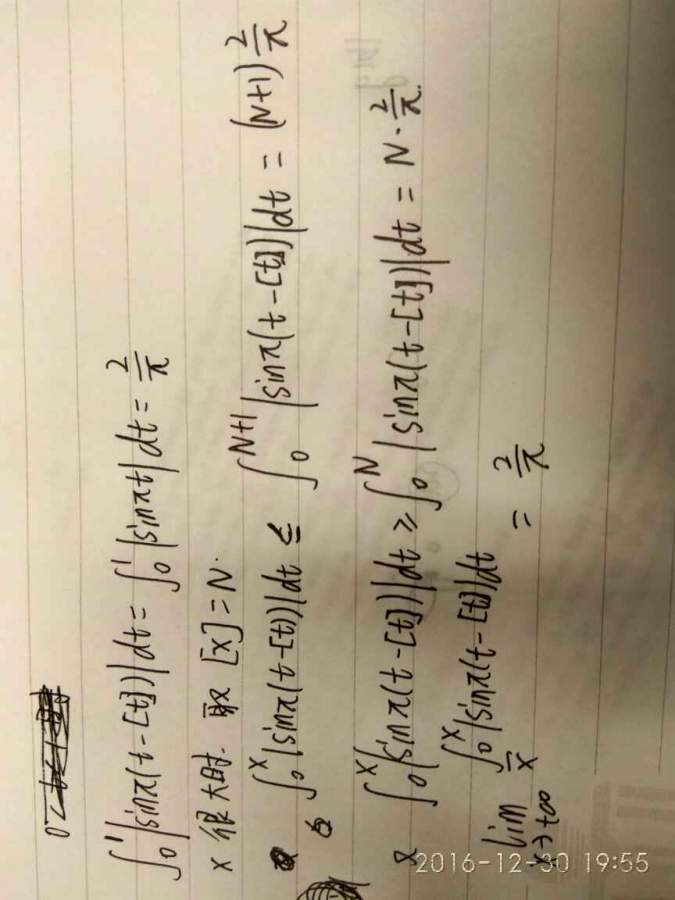 ∫₀¹|sinπ(t-[t])|dt = ∫₀¹|sinπt|dt = 2/π
x 很大时. 取 [x]=N.
∫₀ˣ|sinπ(t-[t])|dt ≤ ∫₀ᴺ⁺¹|sinπ(t-[t])|dt = (N+1)2/π
∫₀ˣ|sinπ(t-[t])|dt ≥ ∫₀ᴺ|sinπ(t-[t])|dt = N·2/π.
lim x→+∞ 1/x ∫₀ˣ|sinπ(t-[t])|dt = 2/π
2016-12-30 19:55